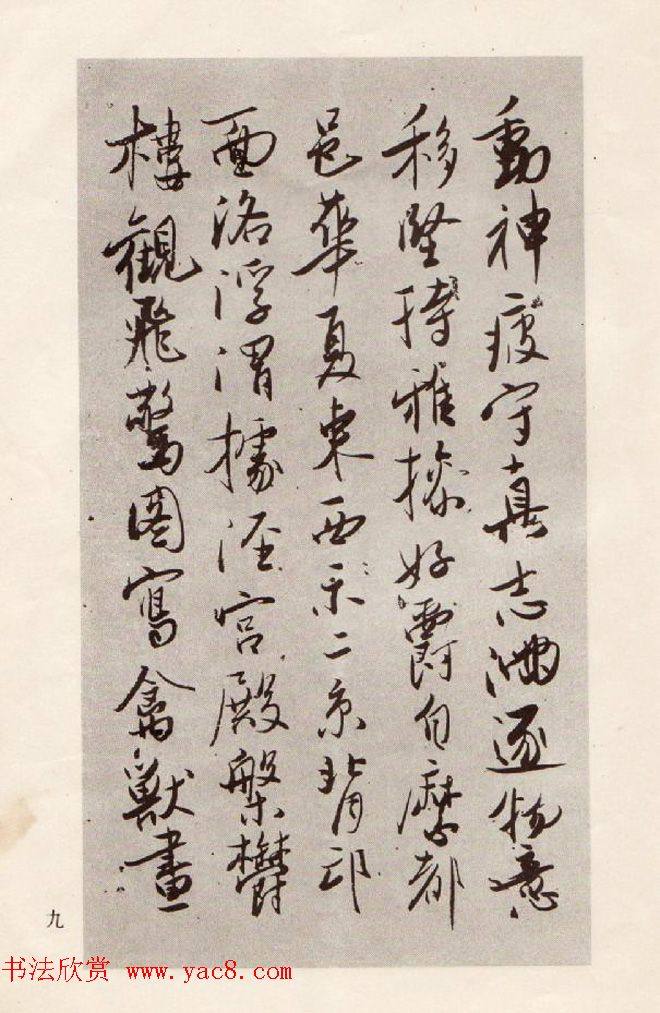 動神疲守真志滿逐物意
移堅持雅操好爵自縻都
邑華夏東西二京背邙
面洛浮渭據涇宮殿槃鬱
樓觀飛驚圖寫禽獸畫
九
书法欣赏 www.yac8.com